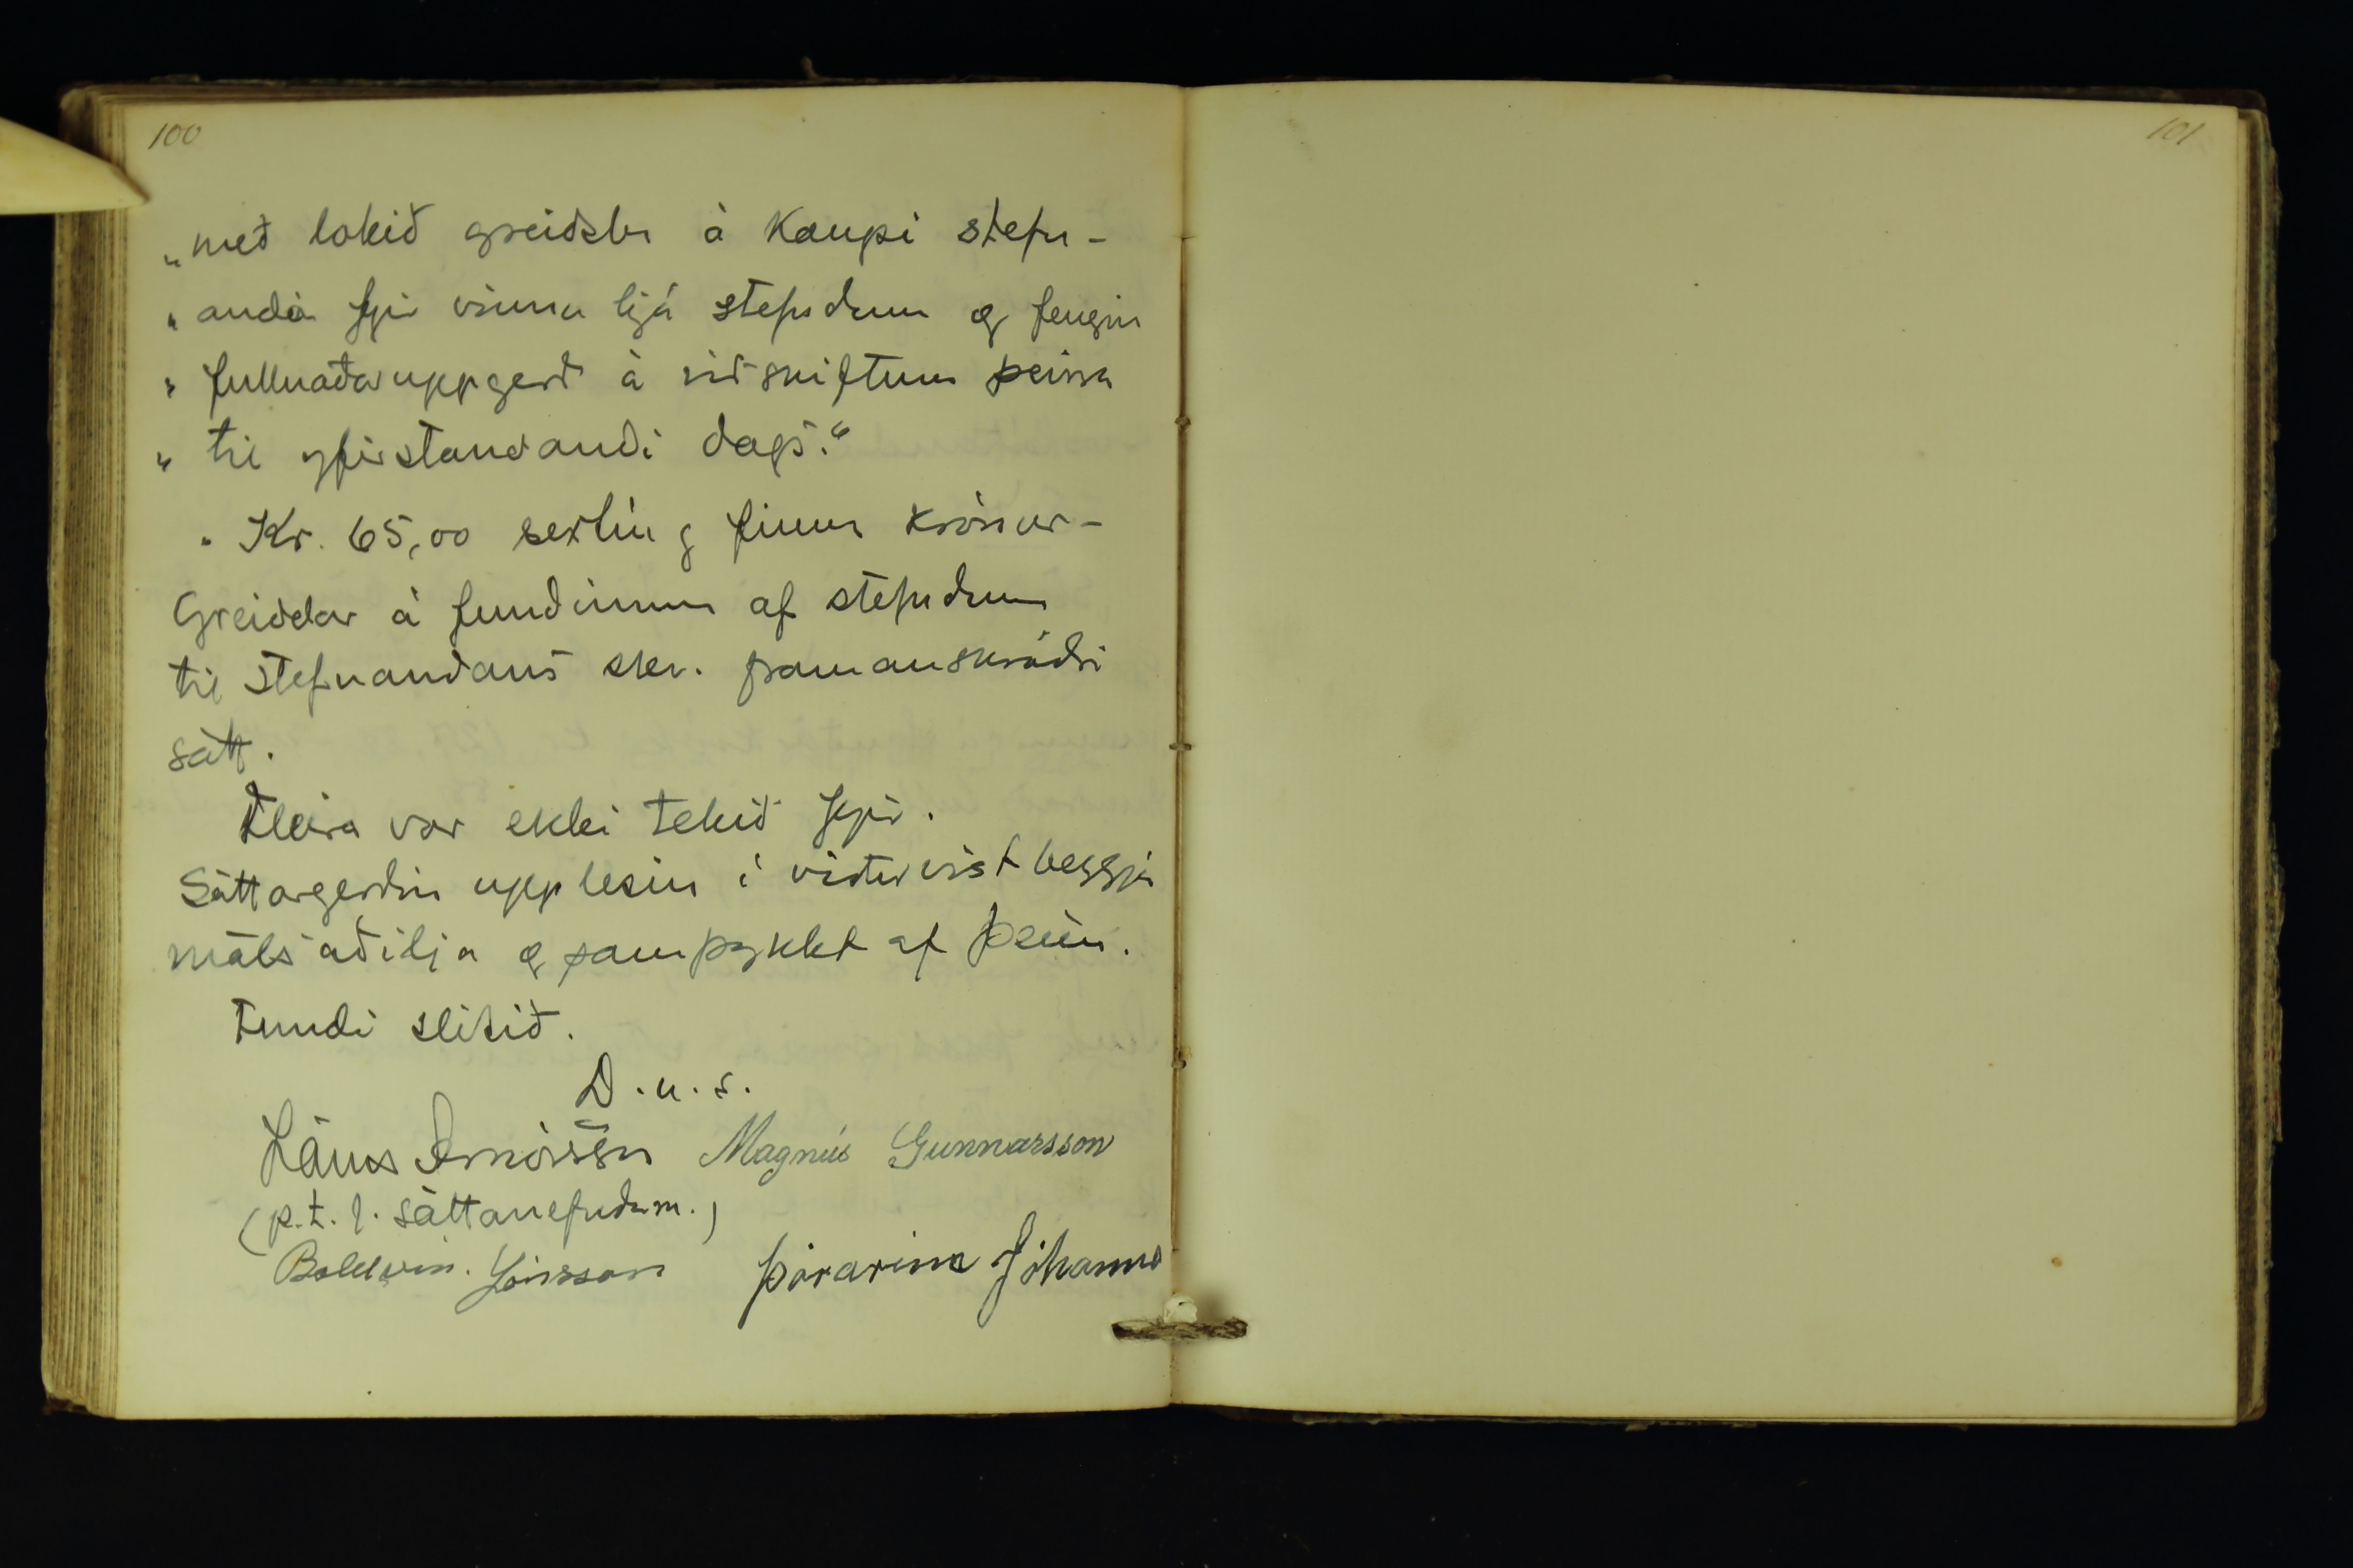 100
101
„með lokið greiðslu á Kaupi stefn-
„anda fyir vinnu hjá stefndum og fengin
„ fullnaðaruppgerð á viðskiftum þeirra
„ til yfirstandandi dags.“
„ Kr. 65,00 sextíu og fimm krónur-
Greiddar á fundinum af stefndum
til stefnandans skv. framanskráðri
sátt.
Fleira var ekki tekið fyir.
Sáttargerðin upplesin í viðurvist beggja
málsaðilja og samþykkt af þeim.
Fundi slitið.
D.u.s.
Lárus Arnórsson Magnús Gunnarsson
(p.t. f. sáttanefndarm.)
Baldvin. Jónsson Þórarinn Jóhanns